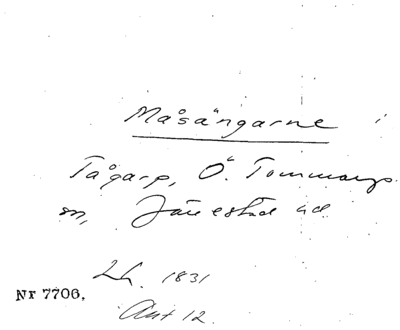 Måsängarne
Tågarp, Ö. Tommarps
sn, Järrestad hd.
Lh. 1831
Nr 7706.
Akt 12.